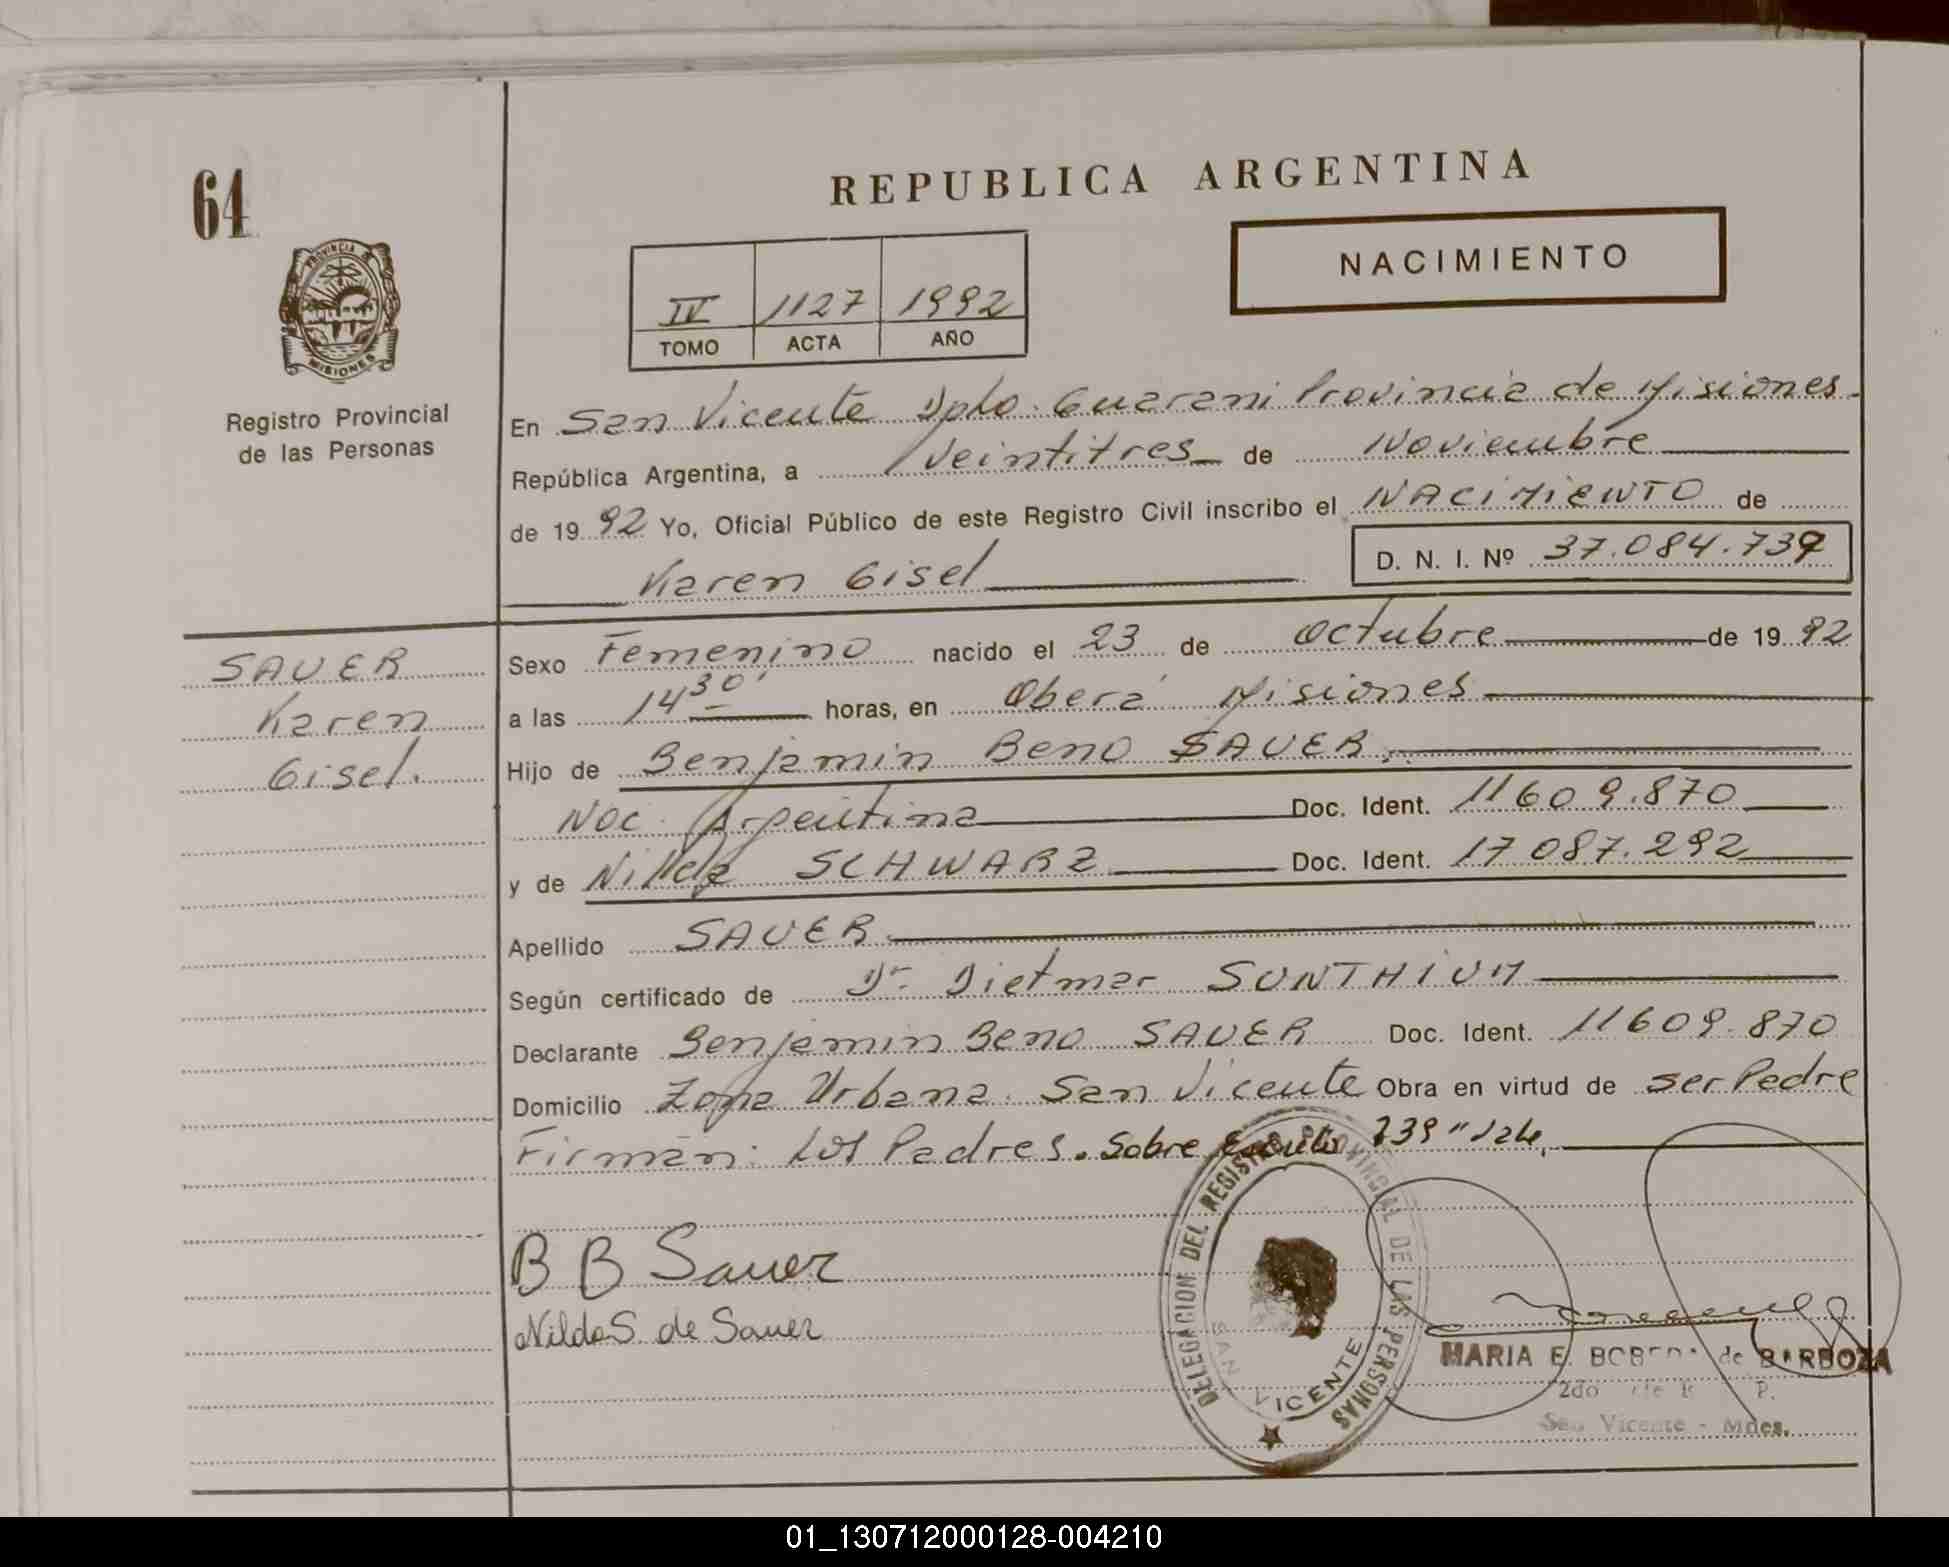 64
REPUBLICA ARGENTINA
NACIMIENTO
PROVINCIA DE
MISIONES
IV 1127 1992
TOMO ACTA AÑO
Registro Provincial
de las Personas
En San Vicente Dpto. Guarani Provincia de Misiones
República Argentina, a Veintitres de Noviembre
de 1992 Yo, Oficial Público de este Registro Civil inscribo el NACIMIENTO de
Karen Gisel D. N. I. Nº 37.084.739
SAUER
Karen
Gisel.
Sexo Femenino nacido el 23 de Octubre de 1992
a las 14 30' horas, en Oberá Misiones
Hijo de Benjamin Beno SAUER
Nac. Argentina Doc. Ident. 11609.870
y de Nilda SCHWARZ Doc. Ident. 17087.292
Apellido SAUER
Según certificado de Dr. Dietmar SONTHIUM
Declarante Benjamin Beno SAUER Doc. Ident. 11609.870
Domicilio Zona Urbana San Vicente Obra en virtud de ser Padre
Firman: Los Padres. Sobre Escrito 739" Vale,
B B Sauer
Nilda S. de Sauer
DELEGACION DEL REGISTRO PROVINCIAL DE LAS PERSONAS
SAN VICENTE
MARIA E. de BARBOZA
2do
San Vicente - Mnes.
01_130712000128-004210